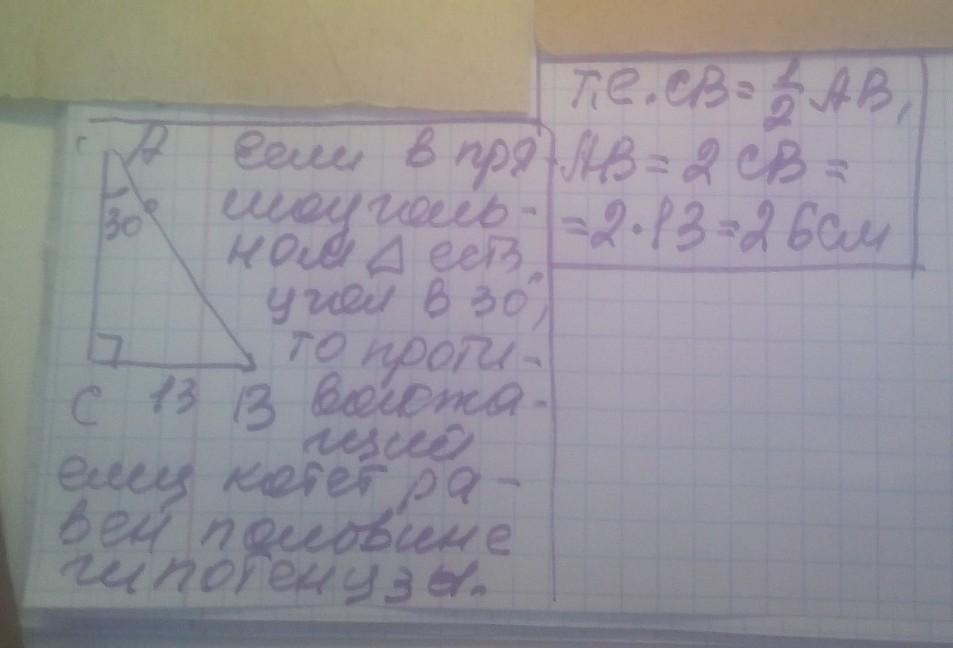 А
30°
С 13 В
если в пря-
моуголь-
ном △ есть
угол в 30°,
то проти-
волежа-
щий
ему катет ра-
вен половине
гипотенузы.
т.е. СВ = 1/2 АВ,
АВ = 2 СВ =
= 2·13 = 26 см